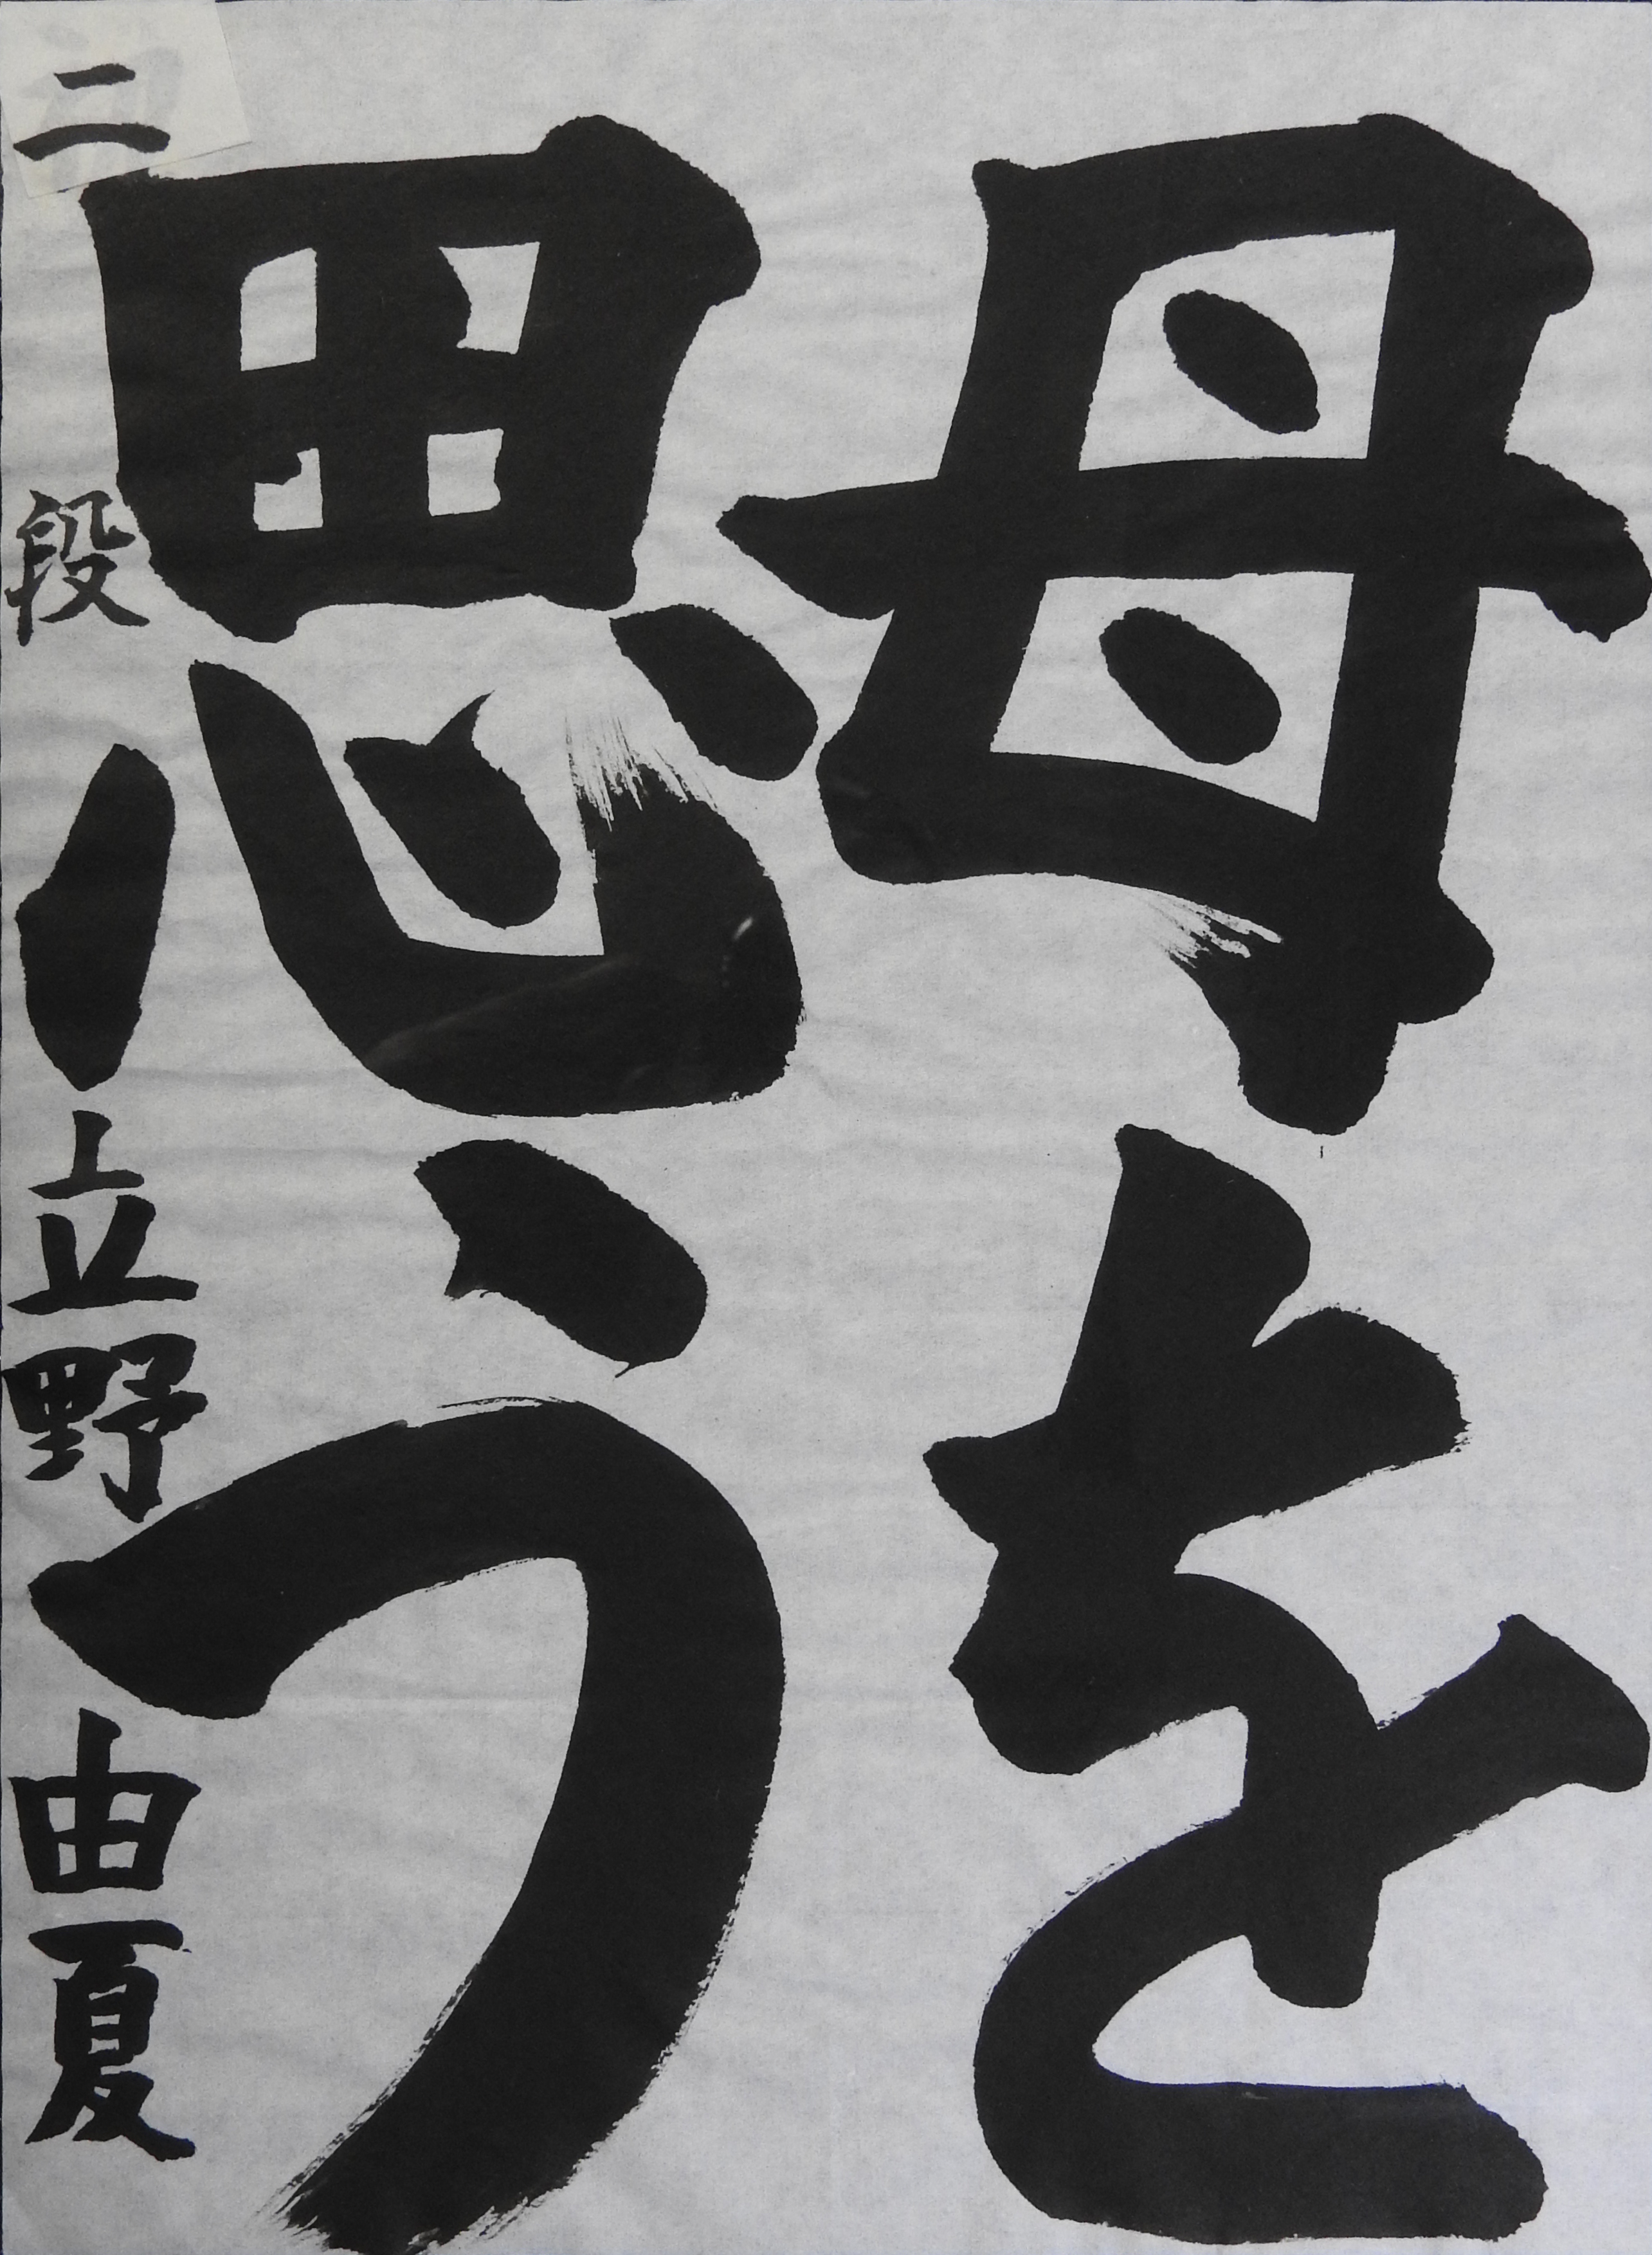 母を
思う
二段 上立野由夏